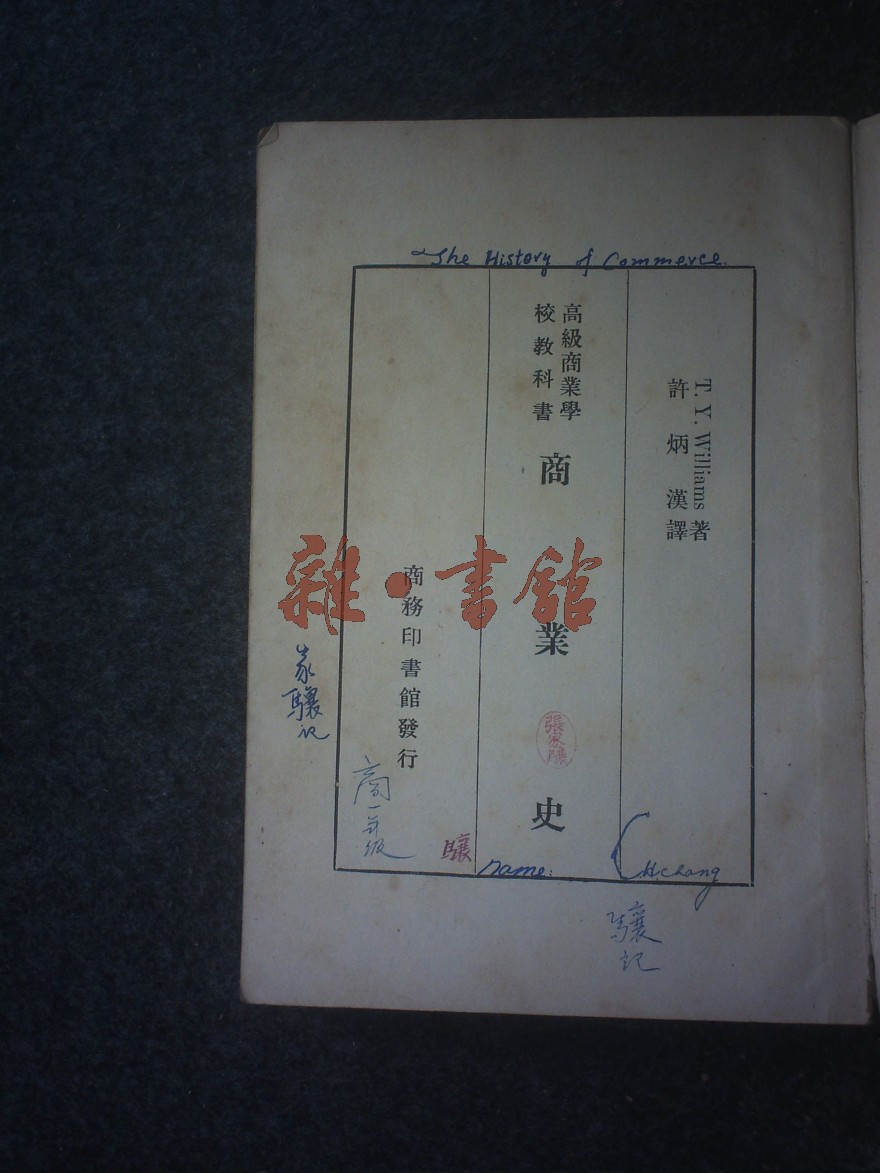 The History of Commerce.
T. Y. Williams 著
許炳漢譯
高級商業學
校教科書
商業史
商務印書館發行
雜·書館
家驤記
商一年級
驤
張家驤
name: CHchang
驤記